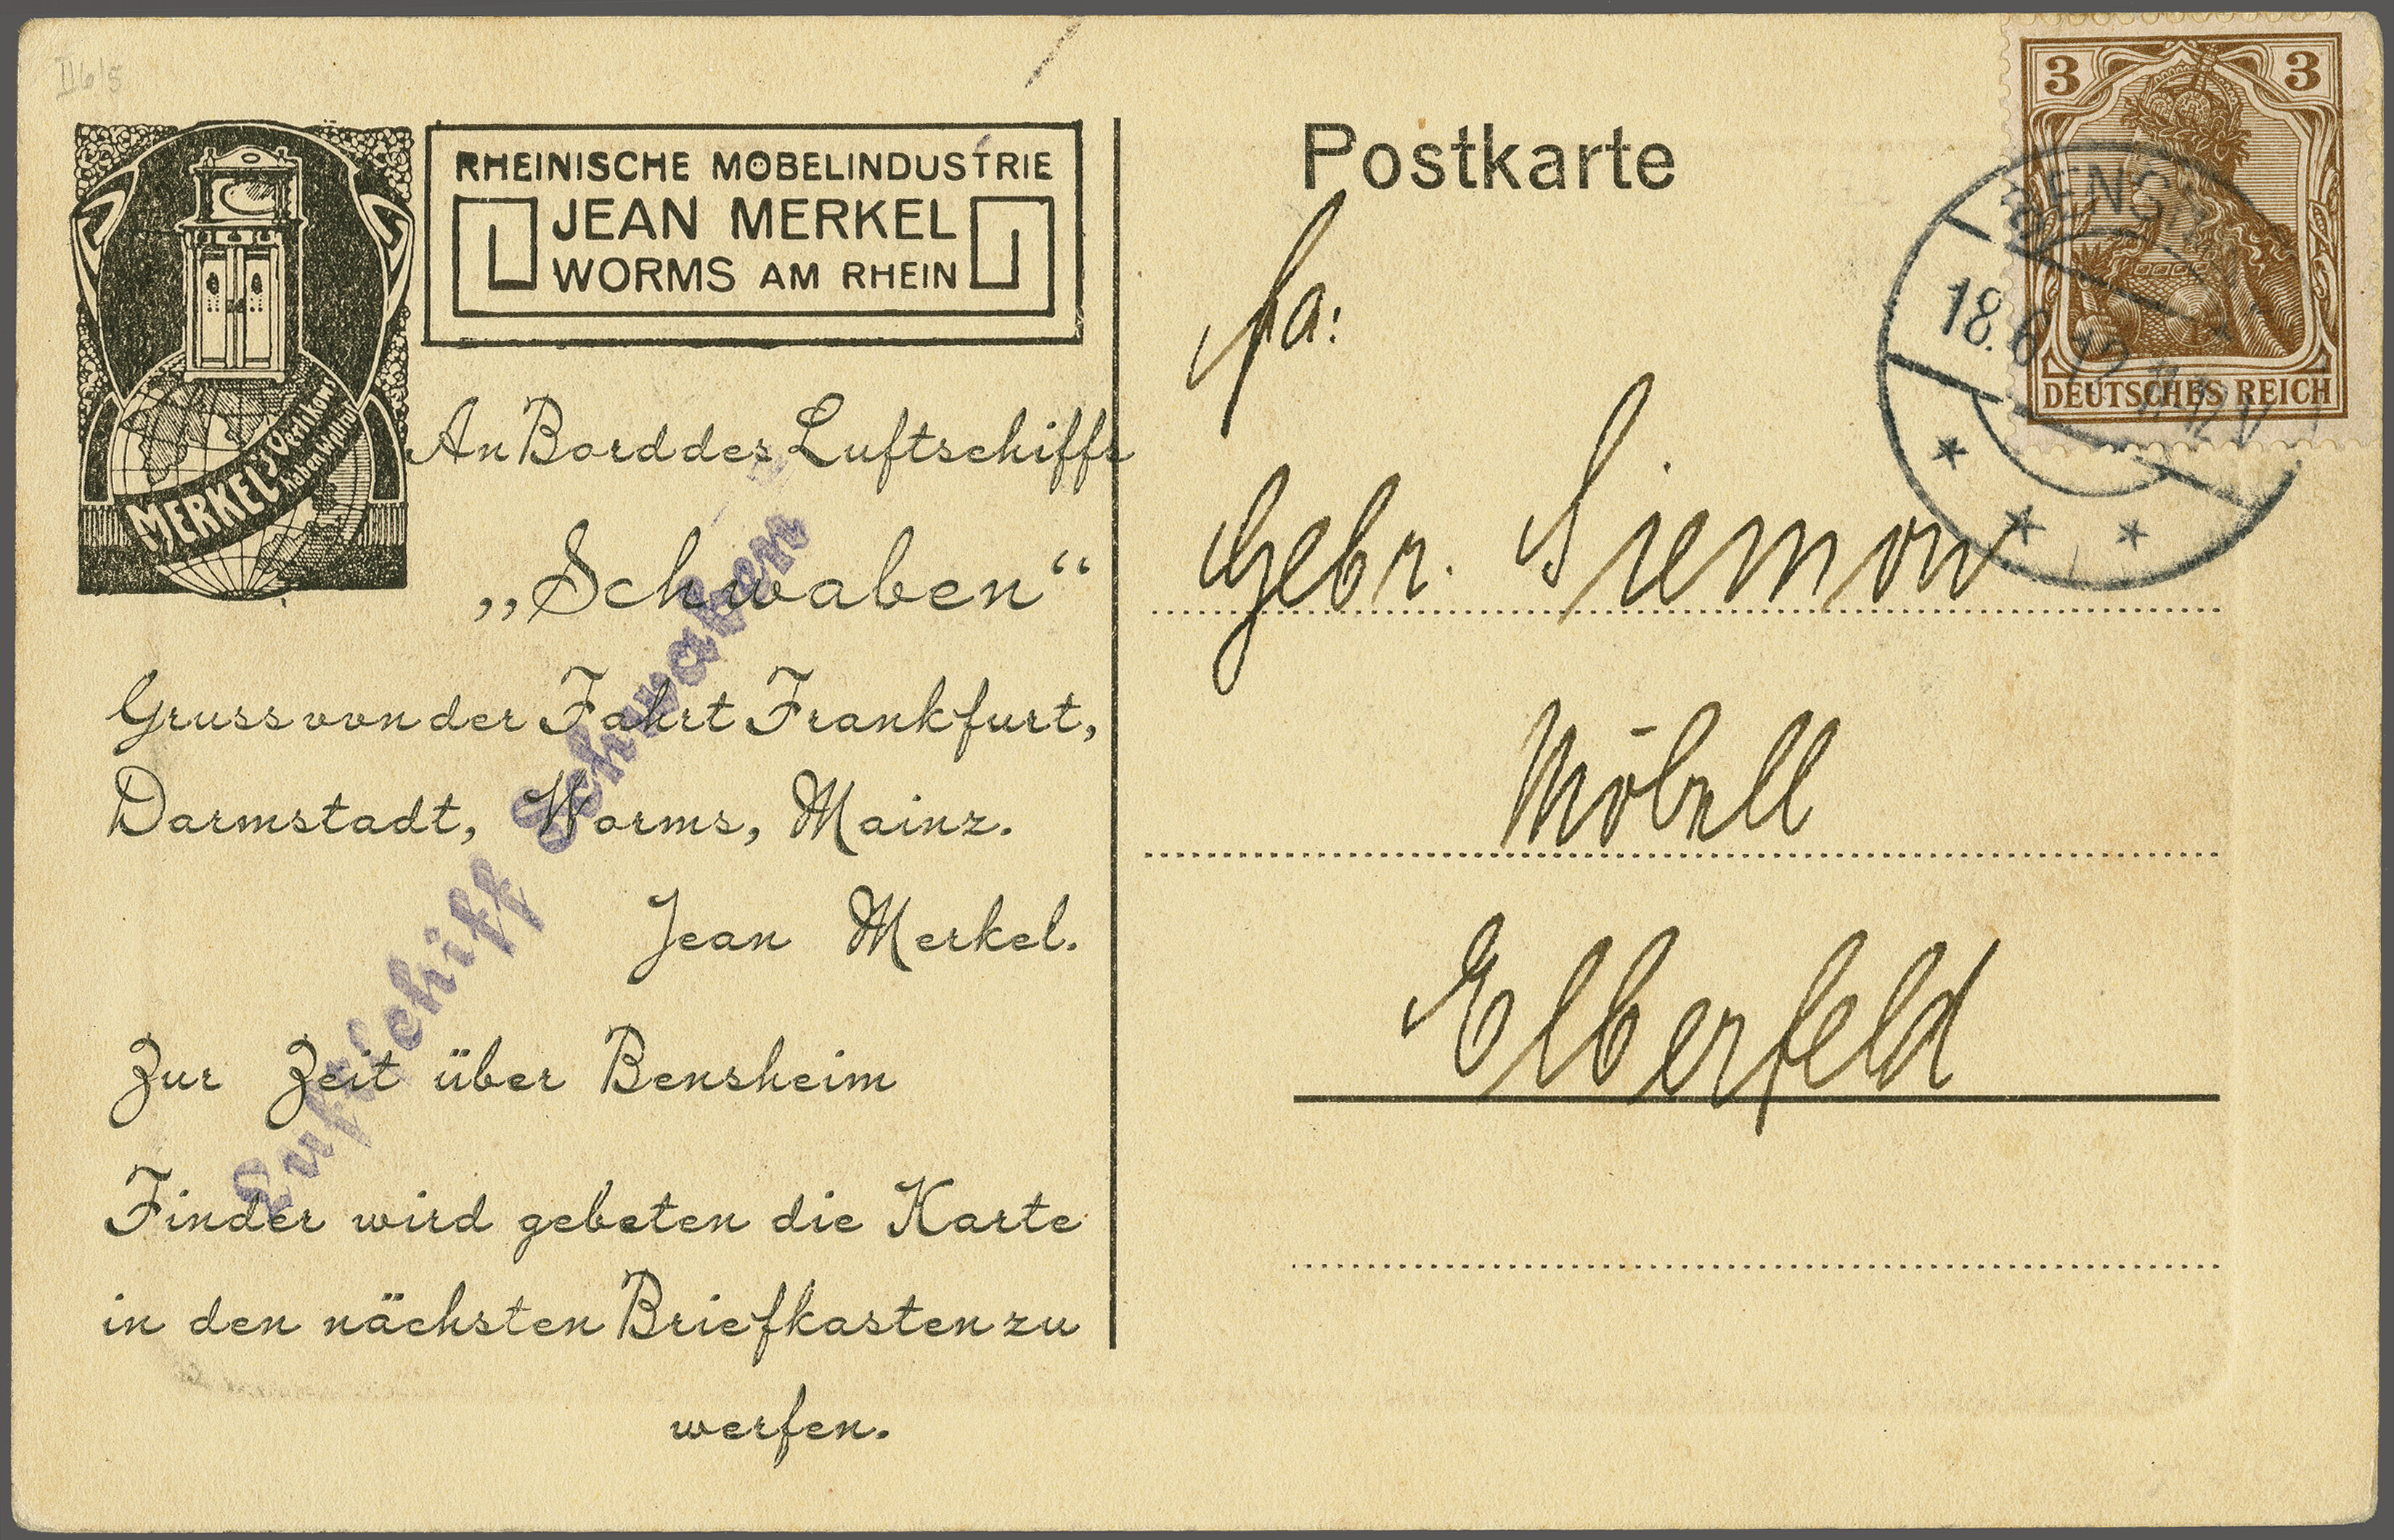 II 6/5
RHEINISCHE MÖBELINDUSTRIE
JEAN MERKEL
WORMS AM RHEIN
MERKEL'S Vertikow
haben Weltruf
An Bord des Luftschiffs
„Schwaben“
Gruss von der Fahrt Frankfurt,
Darmstadt, Worms, Mainz.
Jean Merkel.
Zur Zeit über Bensheim
Finder wird gebeten die Karte
in den nächsten Briefkasten zu
werfen.
Luftschiff Schwaben
Postkarte
3 3
DEUTSCHES REICH
BENSH
18.6.12 11-12 V
Fa:
Gebr. Siemon
Möbell
Elberfeld